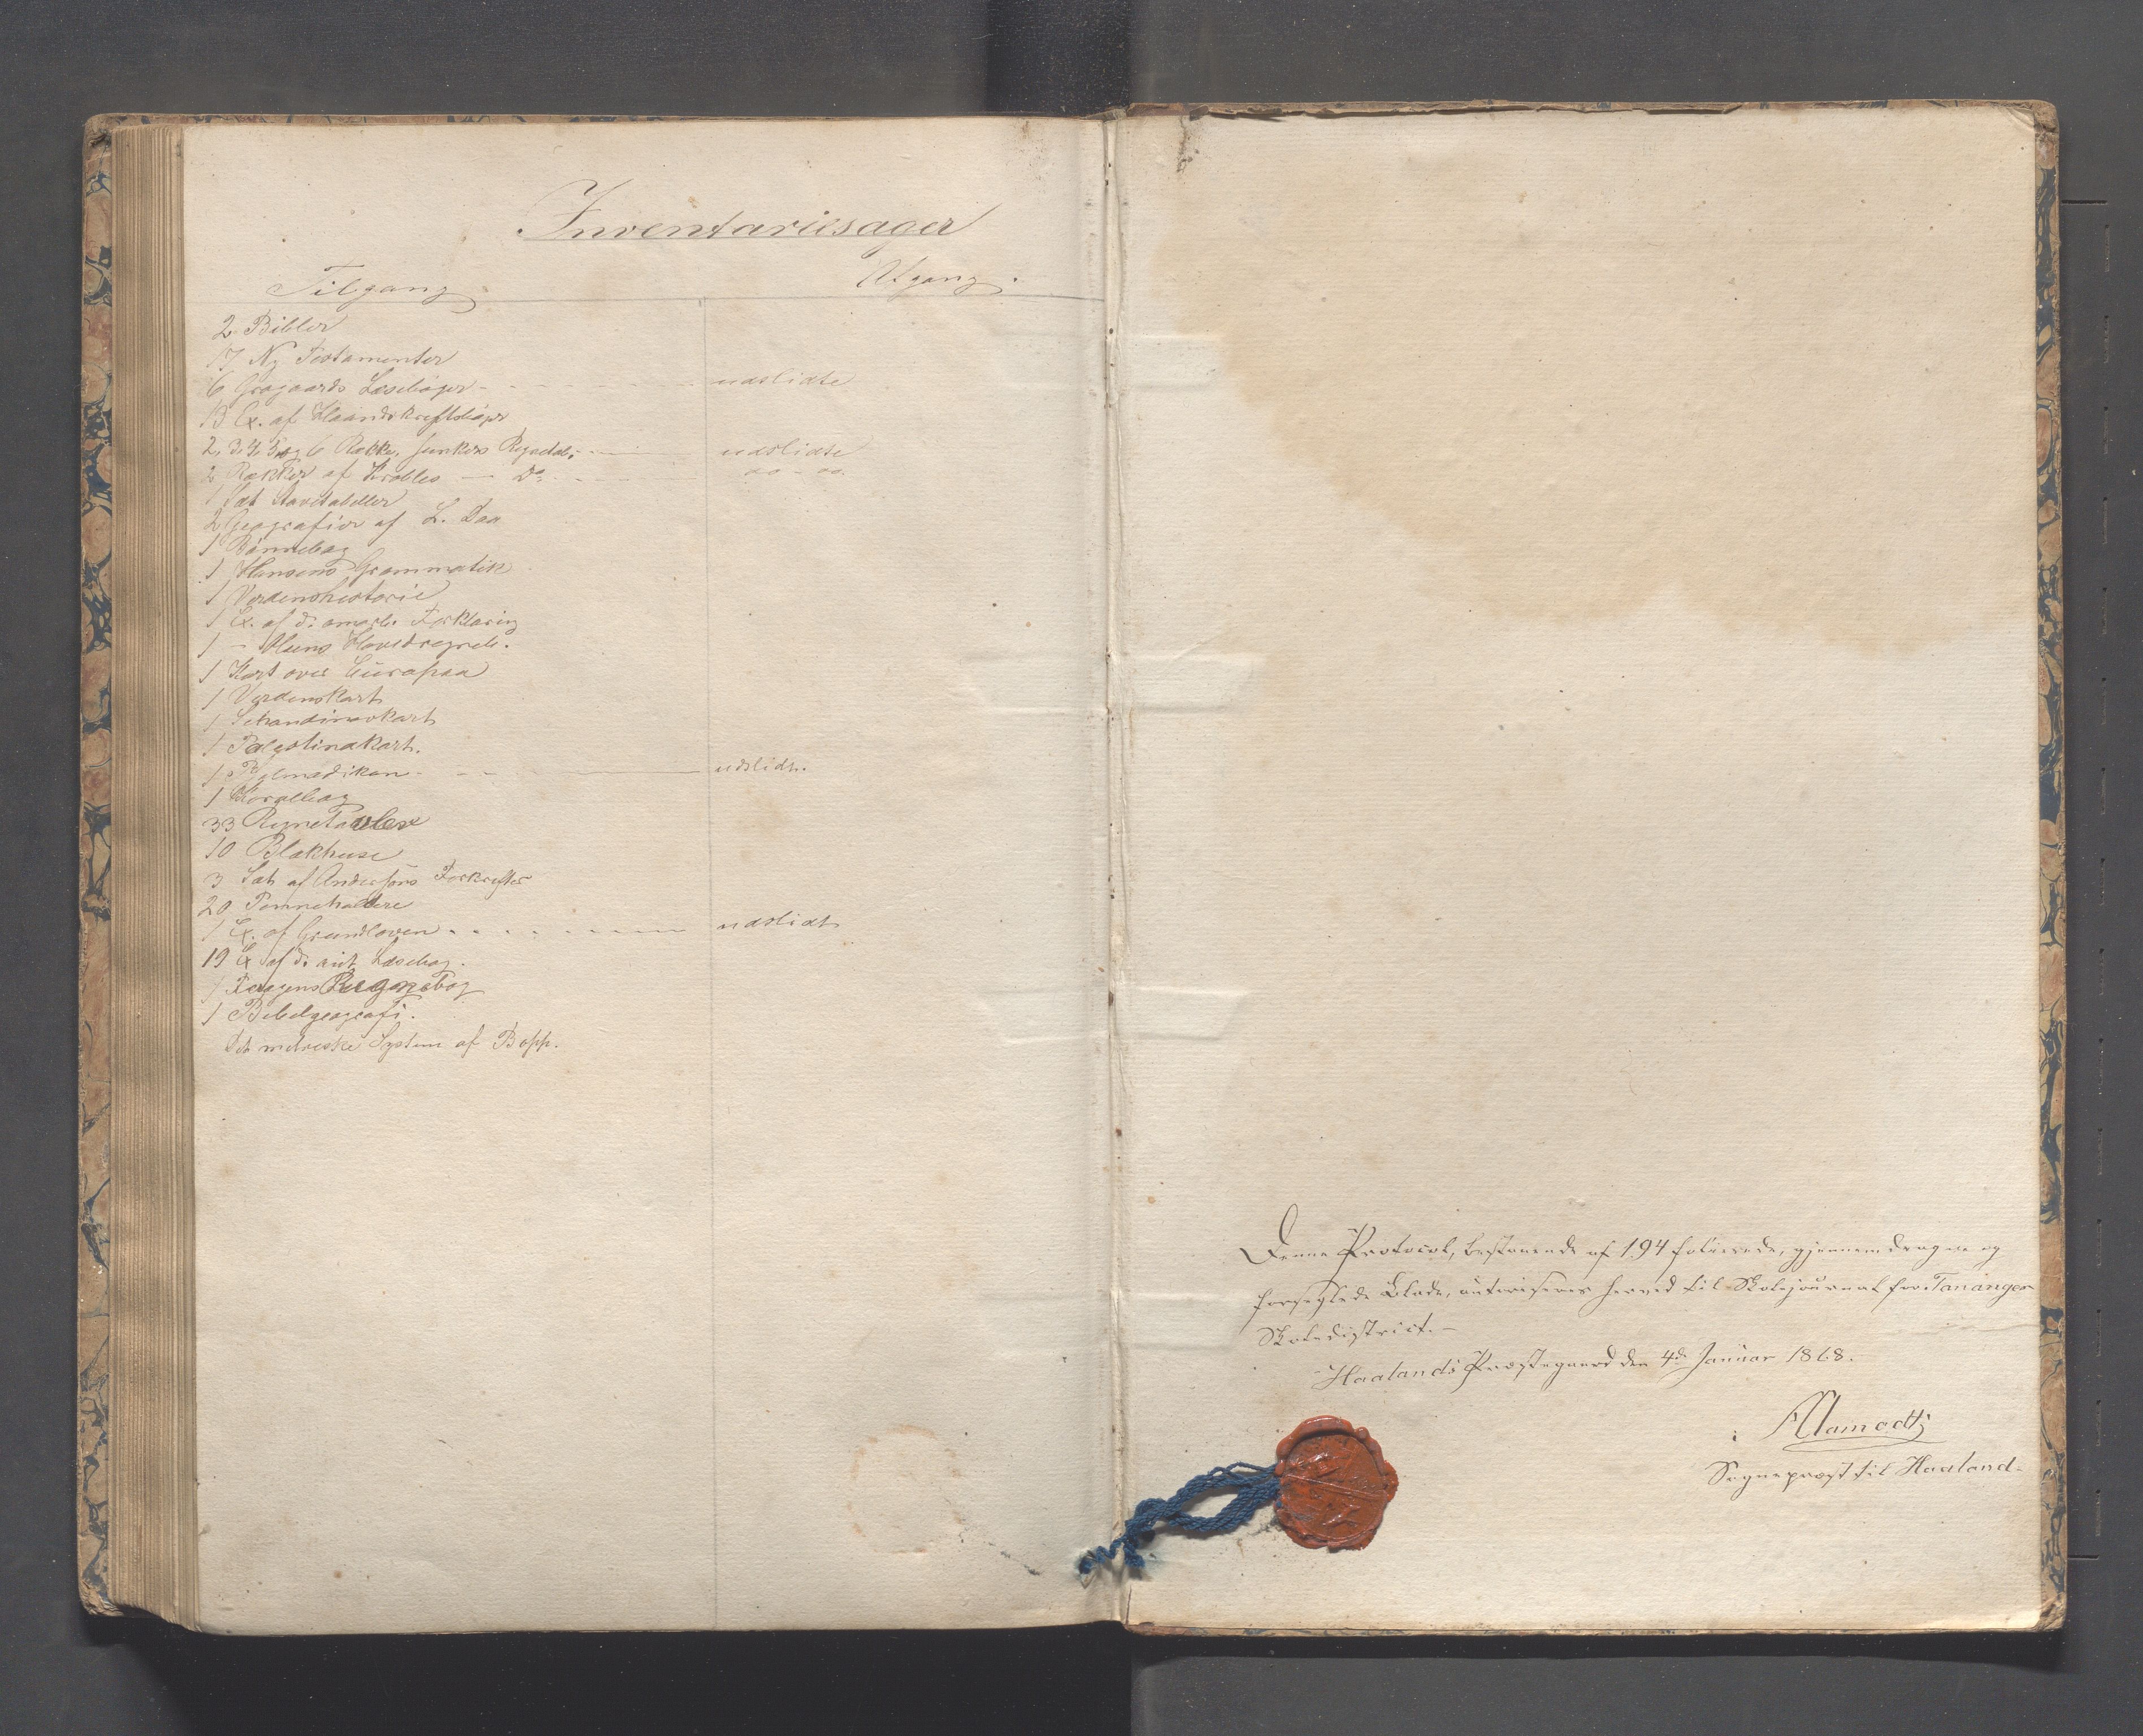 Inventariesager
Tilgang
Afgang.
2 Bibler
17 Ny Testamenter
6 Grøgaards Læsebøger - - - udslidte
13 Ex. af Haandskriftsbøger
2, 3, 4, 5 og 6 Række, Junkers udslidte
2 Rækker af Krobles — Do. do - do.
1 Sæt Stavetabeller
2 Geografier af L. Daa
1 Bønnebog
1 Hansens Grammatik
1 Verdenshistorie
1 Ex. af d. omarb. Forklaring
1 -
1 Kart over Európaa
1 Verdenskart
1 Schandinavkart
1 Palestinakart.
1 Salmodikon - - - udslidt.
1 Koralbog
33 Regnetavler
10 Blækhuse
3 Sæt af Andersens Forskrifter
20 Penneholdere
1 Ex. af Grundloven - - - udslidt
19 Ex. af d. aut. Læsebog.
1 Regnebog
1 Bibelgeografi.
Det metriske System af Bopp.
Denne Protocol, bestaaende af 194 folierede, gjennemdragne og
forseglede Blade, autoriseres herved til Skolejournal for Tananger
Skoledistrict. —
Haalands Præstegaard den 4de Januar 1868.
Aamodt
Sognepræst til Haaland.